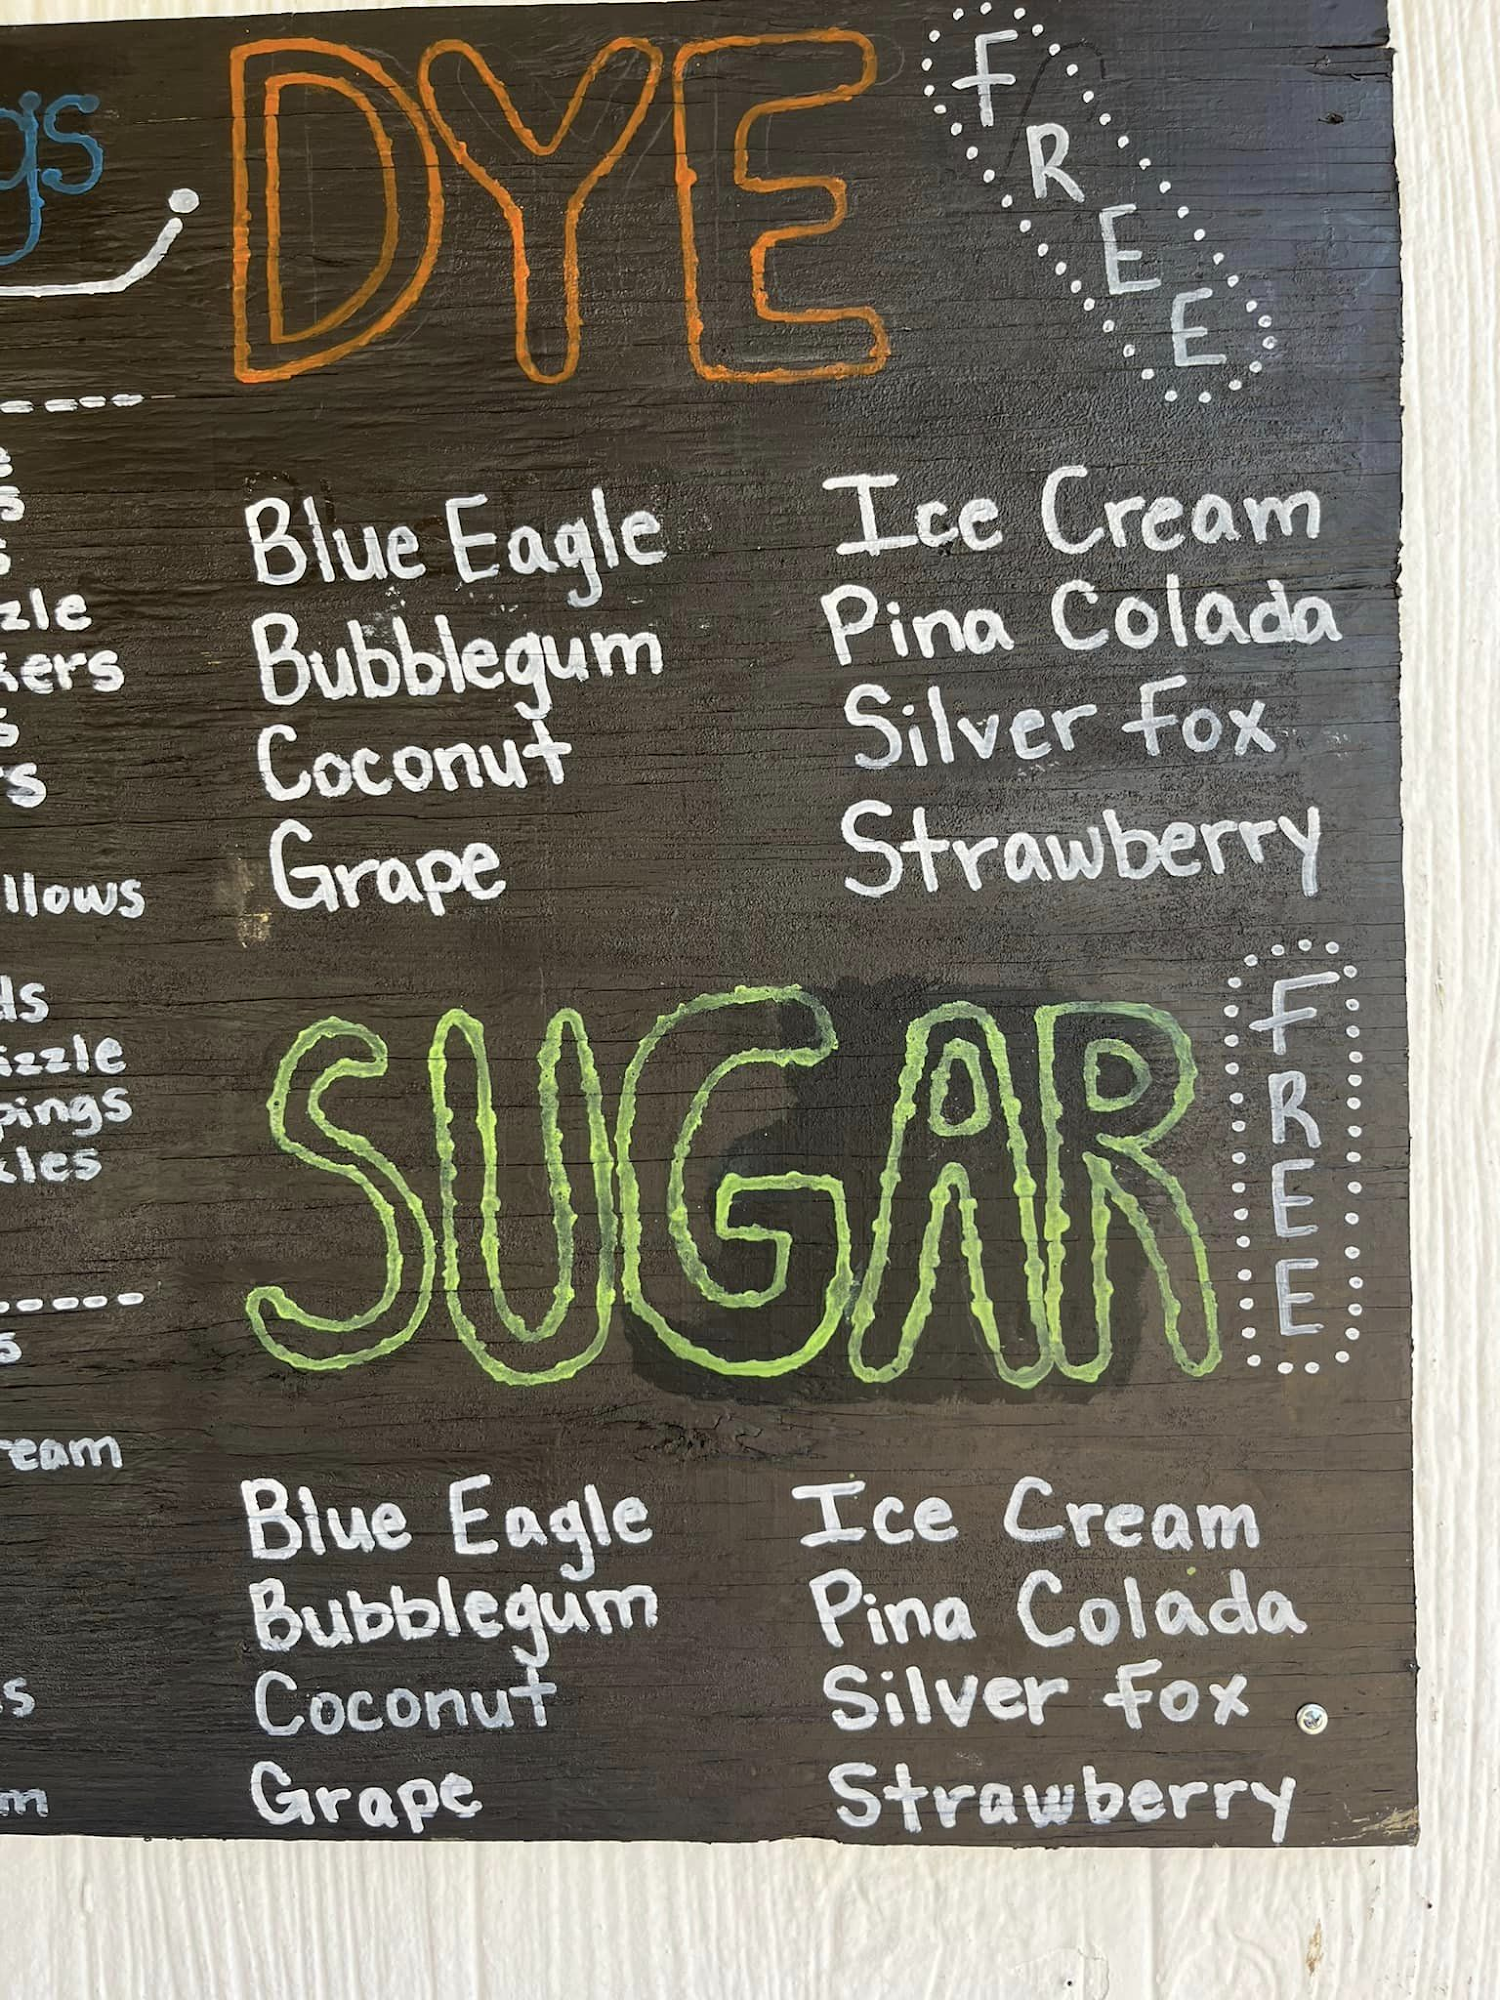 gs
zle
kers
s
rs
llows
ds
izzle
pings
kles
s
ream
s
m
DYE
FREE
Blue Eagle
Bubblegum
Coconut
Grape
Ice Cream
Pina Colada
Silver Fox
Strawberry
SUGAR
FREE
Blue Eagle
Bubblegum
Coconut
Grape
Ice Cream
Pina Colada
Silver Fox
Strawberry